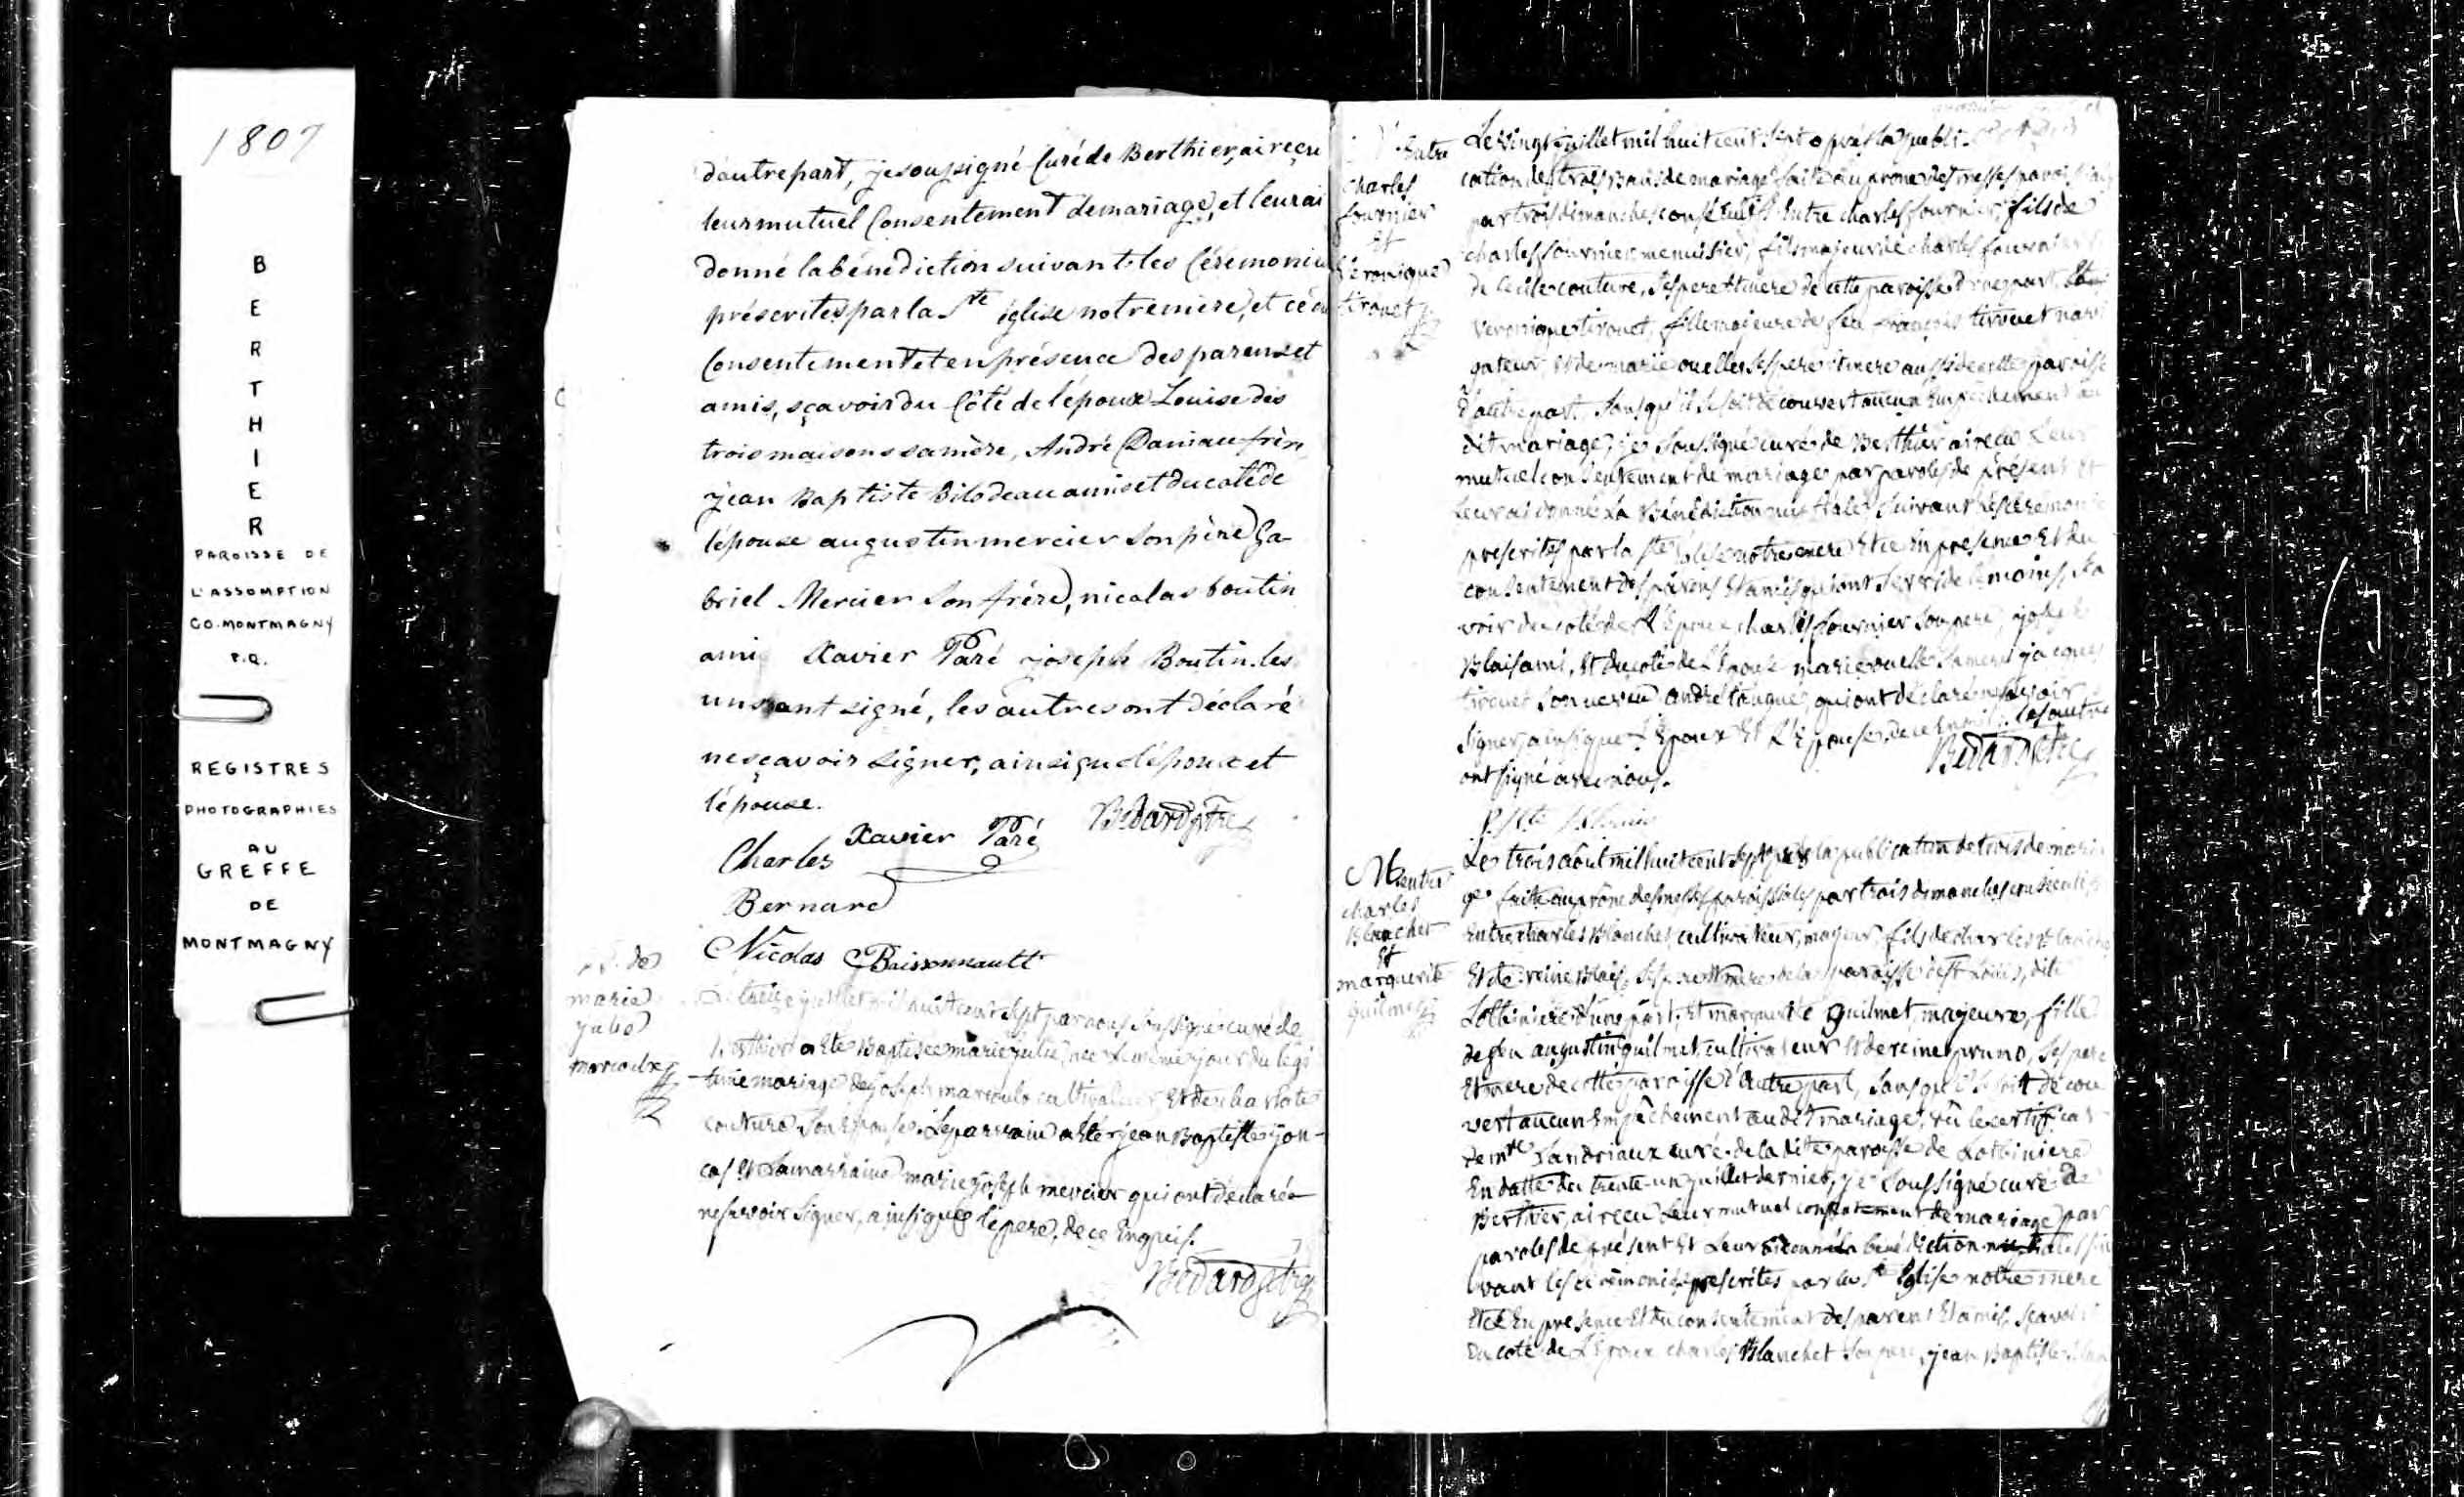 1807
B
E
R
T
H
I
E
R
PAROISSE DE
L'ASSOMPTION
CO. MONTMAGNY
P.Q.
REGISTRES
PHOTOGRAPHIES
AU
GREFFE
DE
MONTMAGNY
d'autre part, je soussigné Curé de Berthier, ai reçu
leur mutuel Consentement de mariage, et leur ai
donné la bénédiction suivant les Cérémonies
préscrites par la Ste église notre mère, et ce du
Consentement et en présence des parens et
amis, sçavoir du Côté de l'époux Louise des
trois maisons sa mère, André Daniau frère
jean Baptiste Bilodeau ami et du coté de
l'épouse augustin mercier son père Ga-
briel Mercier son frére, nicolas boutin
ami Xavier Paré joseph Boutin. les
uns ont signé, les autres ont déclaré
ne sçavoir signer, ainsi que l'époux et
l'épouse.
Xavier Paré Bedard ptre
Charles
Bernard
Nicolas Boissonnault
B. de
marie
julie
marcoulx
Le treize juillet mil huit cent sept par nous soussigné curé de
Berthier a été Baptisée marie julie, née le même jour du légi
time mariage de joseph marcoulx cultivateur Et de charlotte
couture son Epouse. Le parrain a été jean Baptiste jon-
cas Et La marraine marie joseph mercier qui ont déclaré
ne savoir signer, ainsi que le pere, de ce Enquis.
Bedard ptre
M. Entre
Charles
fournier
Et
Véronique
tirouet
Le vingt juillet mil huit cent sept après la publi-
cation des trois Bans de mariage faite au prône des messes paroissiales
par trois dimanches consécutifs Entre charles fournier, fils de
charles fournier menuisier, fils majeur de charles fournier
de Cecile couture, ses pere Et mere de cette paroisse d'une part, Et
Veronique tirouet, fille majeure de feu François tirouet navi
gateur, Et de marie ouellet ses pere et mere aussi de cette paroisse
d'autre part, sans qu'il se soit découvert aucun Empêchement au
dit mariage, je soussigné curé de Berthier ai reçu Leur
mutuel consentement de mariage par paroles de présent Et
Leur ai donné La Bénédiction nuptiale suivant les cérémonies
prescrites par la Ste Eglise notre mere Et ce En presence Et du
consentement des parens Et amis qui ont servi de témoins, sa
voir du coté de L'Epoux charles fournier son pere, joseph
Blais ami, Et du coté de L'Epouse marie ouellet sa mere jacques
tirouet son neveu andré tanguai qui ont déclaré ne savoir
signer, ainsi que L'Epoux Et L'Epouse, de ce Enquis. les autres
ont signé avec nous. Bedard ptre
M. entre
charles
Blanchet
Et
marguerite
guilmet
Le trois août mil huit cent sept après la publication de trois de maria
ge faite au prône des messes paroissiales par trois dimanches consécutifs
Entre charles Blanchet cultivateur, majeur, fils de charles Blanchet
Et de reine Blais, ses pere Et mere de la paroisse de St Louis, dite
Lotbiniere d'une part, Et marguerite guilmet, majeure, fille
de feu augustin guilmet, cultivateur Et de reine pruno, ses pere
Et mere de cette paroisse d'autre part, sans qu'il se soit décou
vert aucun Empêchement au dit mariage, vû le certificat
de mre Landriaux curé de la dite paroisse de Lotbiniere
En datte du trente-un juillet dernier, je soussigné curé de
Berthier, ai recu Leur mutuel consentement de mariage par
paroles de présent Et Leur ai donné la bénédiction nuptiale sui
vant les cérémonies prescrites par la Ste Eglise notre mere
Et ce En presence Et du consentement des parens Et amis, sçavoir
Du coté de L'Epoux charles Blanchet son pere, jean Baptiste